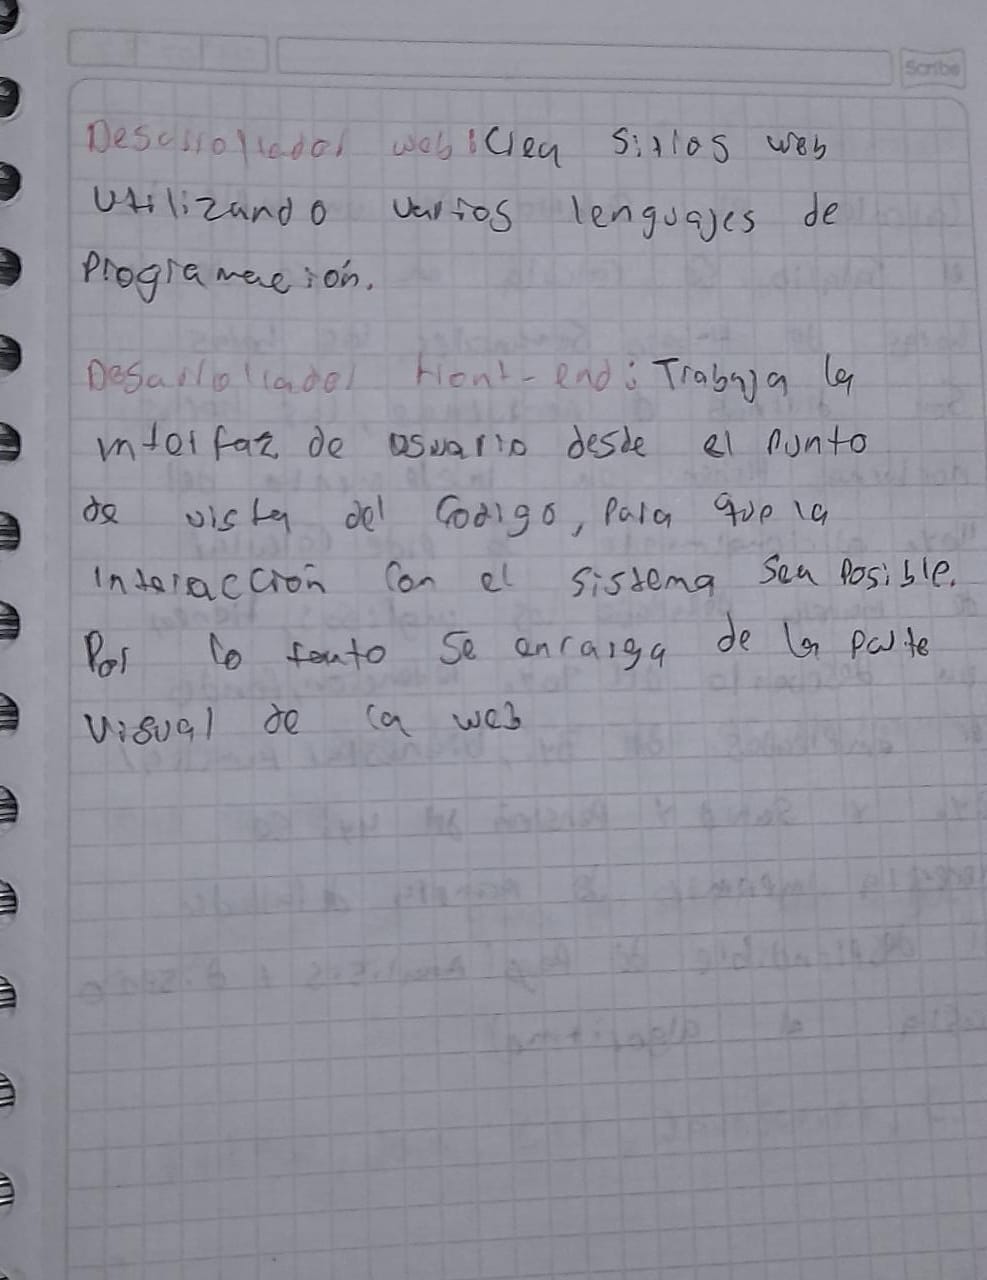 Scribe
Desarrollador web: Crea sitios web
Utilizando varios lenguajes de
Programación.
Desarrollador Front-end: Trabaja la
interfaz de usuario desde el punto
de vista del Codigo, Para que la
Interacción Con el sistema sea Posible.
Por lo tanto Se encarga de la parte
Visual de la web